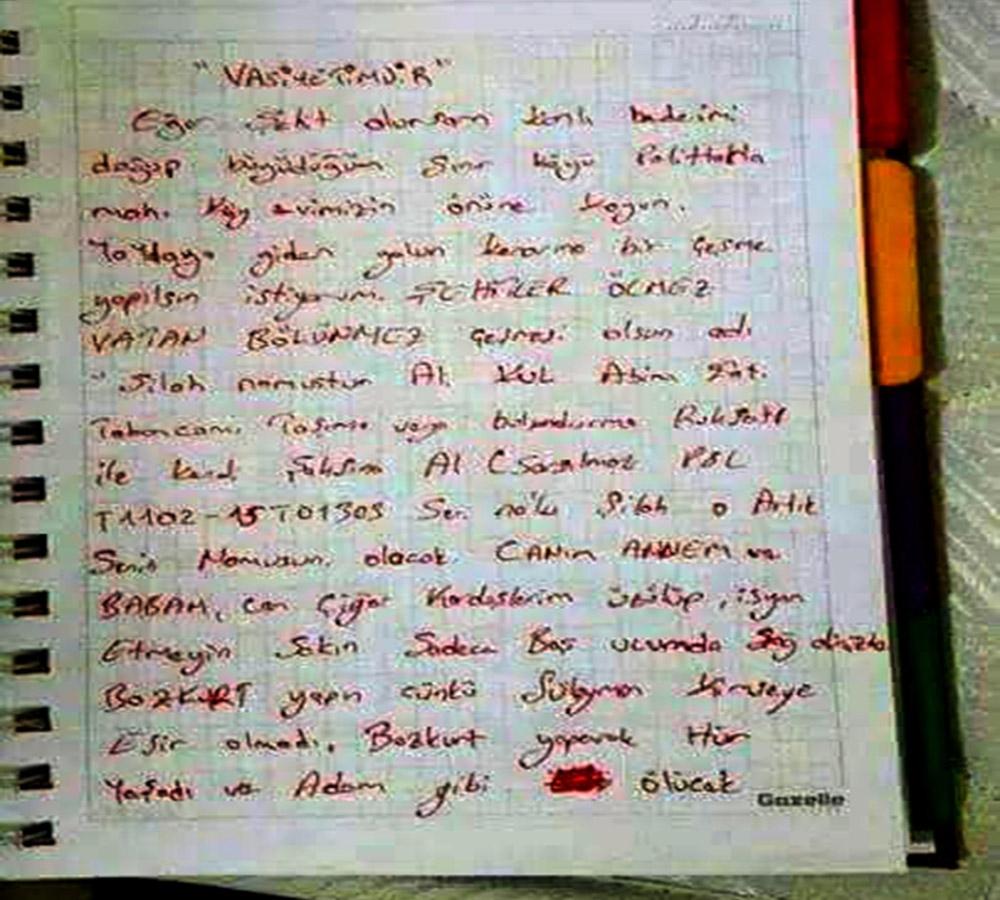 " VASİYETİMDİR "
Eğer Şehit olursam kanlı bedenimi
doğup büyüdüğüm Sınır köyü
mah. Köy evimizin önüne koyun.
Yaylaya giden yolun kenarına bir Çeşme
yapılsın istiyorum. ŞEHİTLER ÖLMEZ
VATAN BÖLÜNMEZ Çeşmesi olsun adı
" Silah namustur Al. KUL Abim Zati
Tabancamı Taşıma veya bulundurma Ruhsatı
ile kendi Al (Sarsılmaz
T1102-15T01303 Seri no'lu Silah o Artık
Senin Namusun olacak. CANIM ANNEM ve
BABAM, Can Ciğer Kardeşlerim üzülüp, isyan
Etmeyin Sakın Sadece Baş ucumda Sağ
BOZKURT yapın çünkü Süleyman kimseye
Esir olmadı, Bozkurt yaparak Hür
Yaşadı ve Adam gibi ölücek
Gazelle